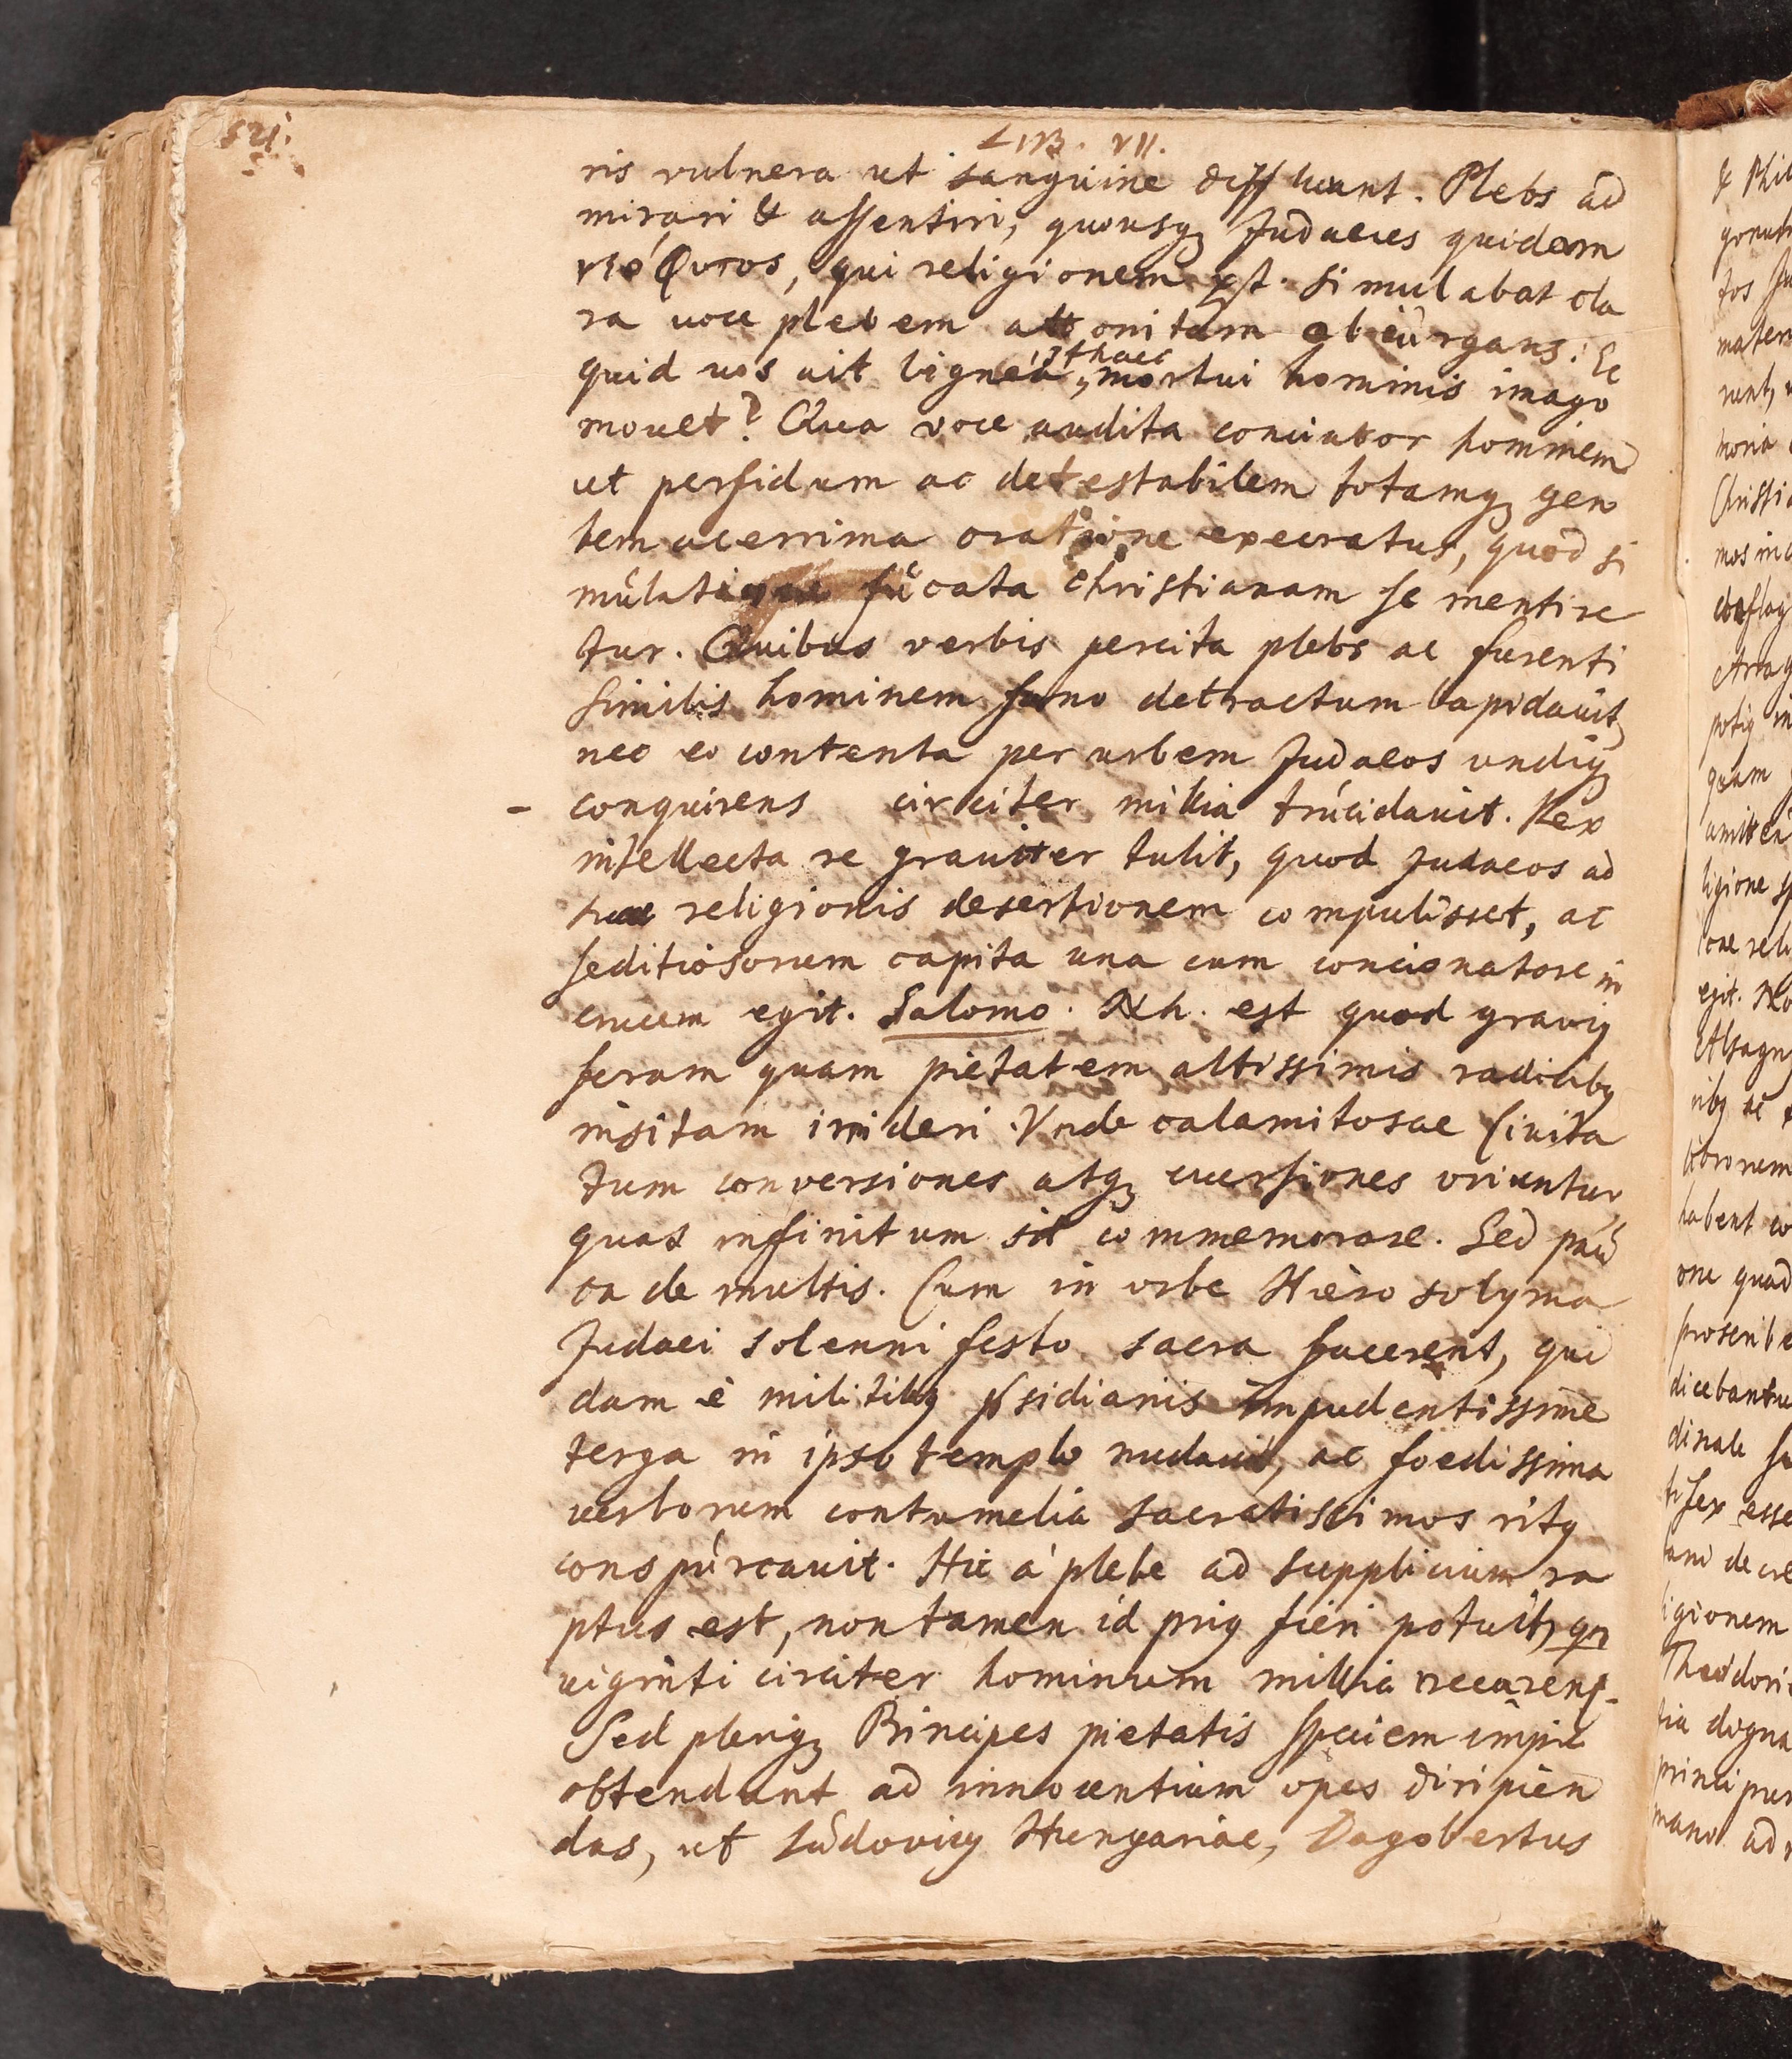 521.
LIB. VII.
ris vulnera ut sanguine diffluant. Plebs ad
mirari & assentiri, quousq; Judaeus quidam
νεόφυτος, qui religionem χρι. simulabat cla
ra uoce plebem attonitam obiurgans: Ec
quid uos ait lignea isthaec, mortui hominis imago
mouet? Qua voce audita concinator hominem
ut perfidum ac detestabilem totamq; gen
tem acerrima oratione execratus, quod si
mulatione fucata Christianam se mentire
tur. Quibus verbis percita plebs ac furenti
similis hominem fano detractum lapidauit,
nec eo contenta per urbem Judaeos undiq;
- conquirens circiter millia trucidauit. Rex
intellecta re grauiter tulit, quod Judaeos ad
suae religionis desertionem compulisset, ac
seditiosorum capita una cum concionatore in
crucem egit. Salomo. Nh. est quod grauiꝰ
feram quam pietatem altissimis radicibꝰ
insitam irrideri. Vnde calamitosae Ciuita
tum conversiones atq; euersiones oriuntur
quas infinitum sit commemorare. Sed pau
ca de multis. Cum in vrbe Hierosolyma
Judaei solenni festo sacra facerent, qui
dam è militibꝰ psidianis impudentissime
terga in ipso templo nudauit, ac foedissima
uerborum contumelia sacratissimos ritꝰ
conspurcauit. Hic à plebe ad supplicium ra
ptus est, non tamen id priꝰ fieri potuit, qn
uiginti circiter hominum millia necarent.
Sed pleriq; Principes pietatis speciem impie
obtendunt ad innocentium opes diripien
das, ut Ludovicꝰ Hungariae, Dagobertus